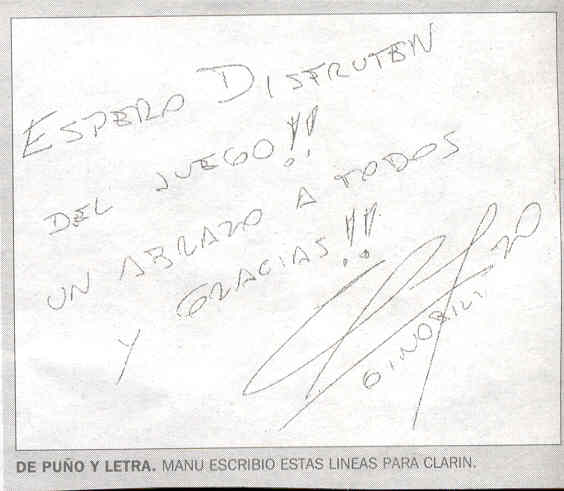 ESPERO DISFRUTEN
DEL JUEGO!!
UN ABRAZO A TODOS
Y GRACIAS!!
GINOBILI.
DE PUÑO Y LETRA. MANU ESCRIBIO ESTAS LINEAS PARA CLARIN.